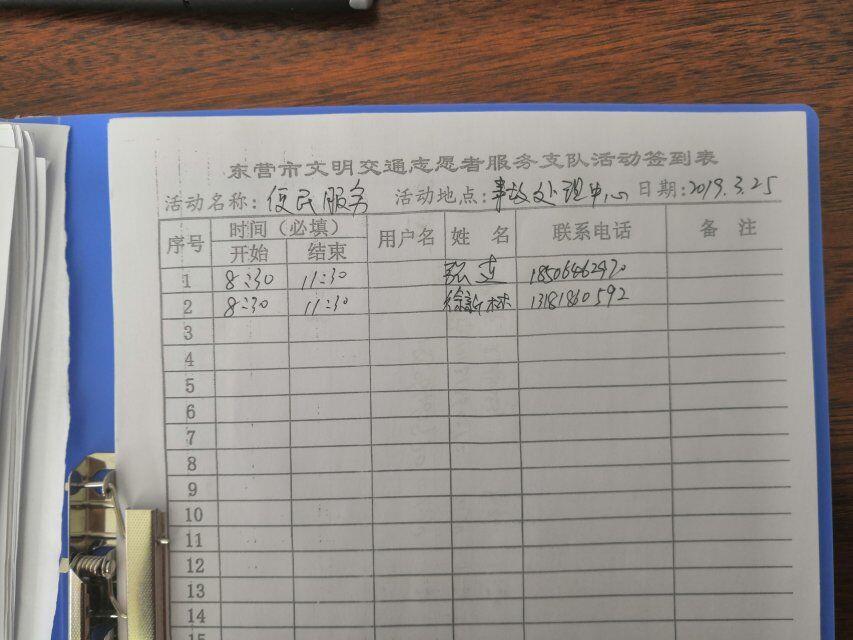 东营市文明交通志愿者服务支队活动签到表
活动名称：便民服务 活动地点：事故处理中心 日期：2019.3.25
序号 时间（必填） 用户名 姓 名 联系电话 备 注
开始 结束
1 8:30 11:30 张
2 8:30 11:30 徐新林 13181860592
3
4
5
6
7
8
9
10
11
12
13
14
15